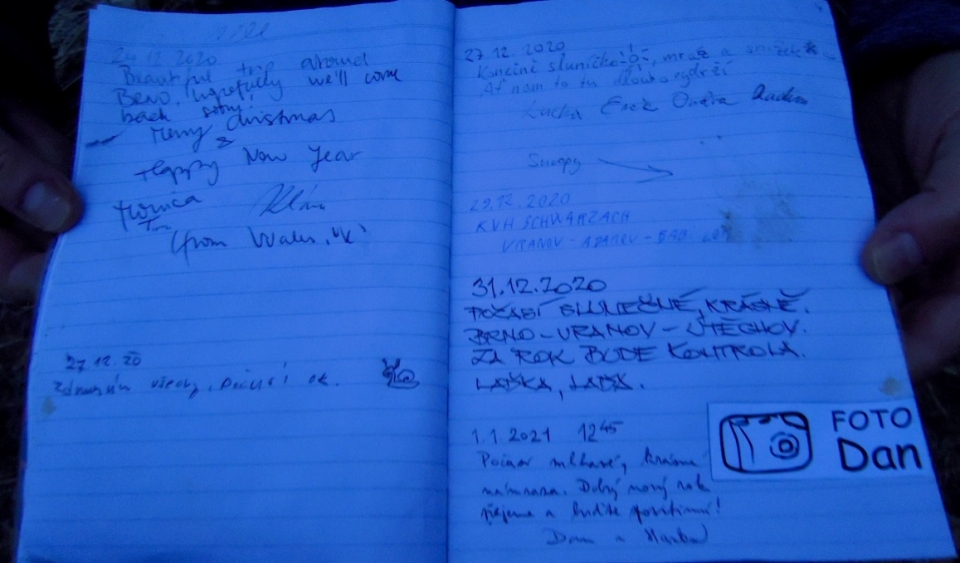 24.12.2020
Beautiful trip around
Brno, hopefully we'll come
back soon!
Merry Christmas
&
Happy New Year
Monica
(from Wales, UK)
27.12.20
Zdravím všechny, počasí ok.
27.12.2020
Konečně sluníčko, mráz a snížek
Ať nám to tu dlouho vydrží
Lucka Erik Ondra Radim
Snoopy
29.12.2020
KVH SCHWARZACH
VRANOV - ADAMOV -
31.12.2020
POČASÍ SLUNEČNÉ, KRÁSNĚ.
BRNO - VRANOV - ÚTĚCHOV.
ZA ROK BUDE KONTROLA.
1.1.2021 12 45
Počasí mlhavé, krásná
námraza. Dobrý nový rok
přejeme a buďte pozitivní!
Dan a
FOTO
Dan